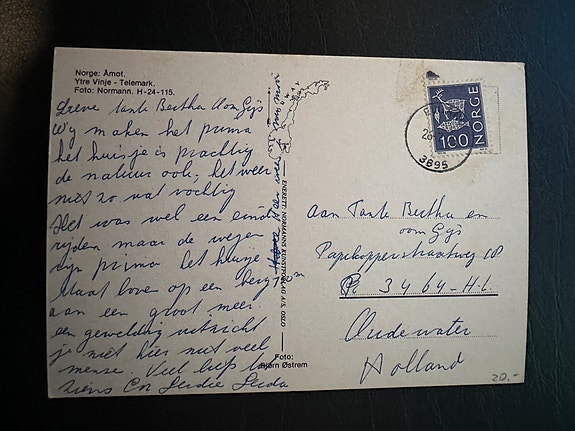 Norge: Åmot.
Ytre Vinje - Telemark.
Foto: Normann. H-24-115.
Lieve tante Bertha Oom Gijs
Wij maken het prima
het huisje is prachtig
de natuur ook, het weer
niet zo wat vochtig
Het was wel een eind
rijden maar de wegen
zijn prima het huisje
staat boven op een berg
aan een groot meer
een geweldig uitzicht
je ziet hier niet veel
mense. Veel liefs tot
ziens Cor Lerdie Leida
NORWAY
ENERETT: NORMANNS KUNSTFORLAG A/S, OSLO
Foto:
Bjørn Østrem
NORGE
100
3895
Aan Tante Bertha en
oom Gijs
Papekopperstraatweg
3464-H.L.
Oudewater
Holland
20,-